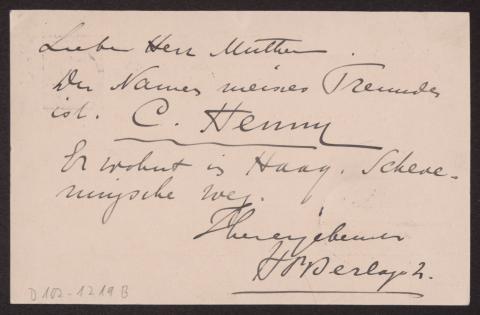 Lieber Herr Muther.
Der Name meines Freundes
ist. C. Henny
Er wohnt in Haag. Scheve-
ningsche weg.
Ihr ergebener
HPBerlage N.
D 102-1219 B